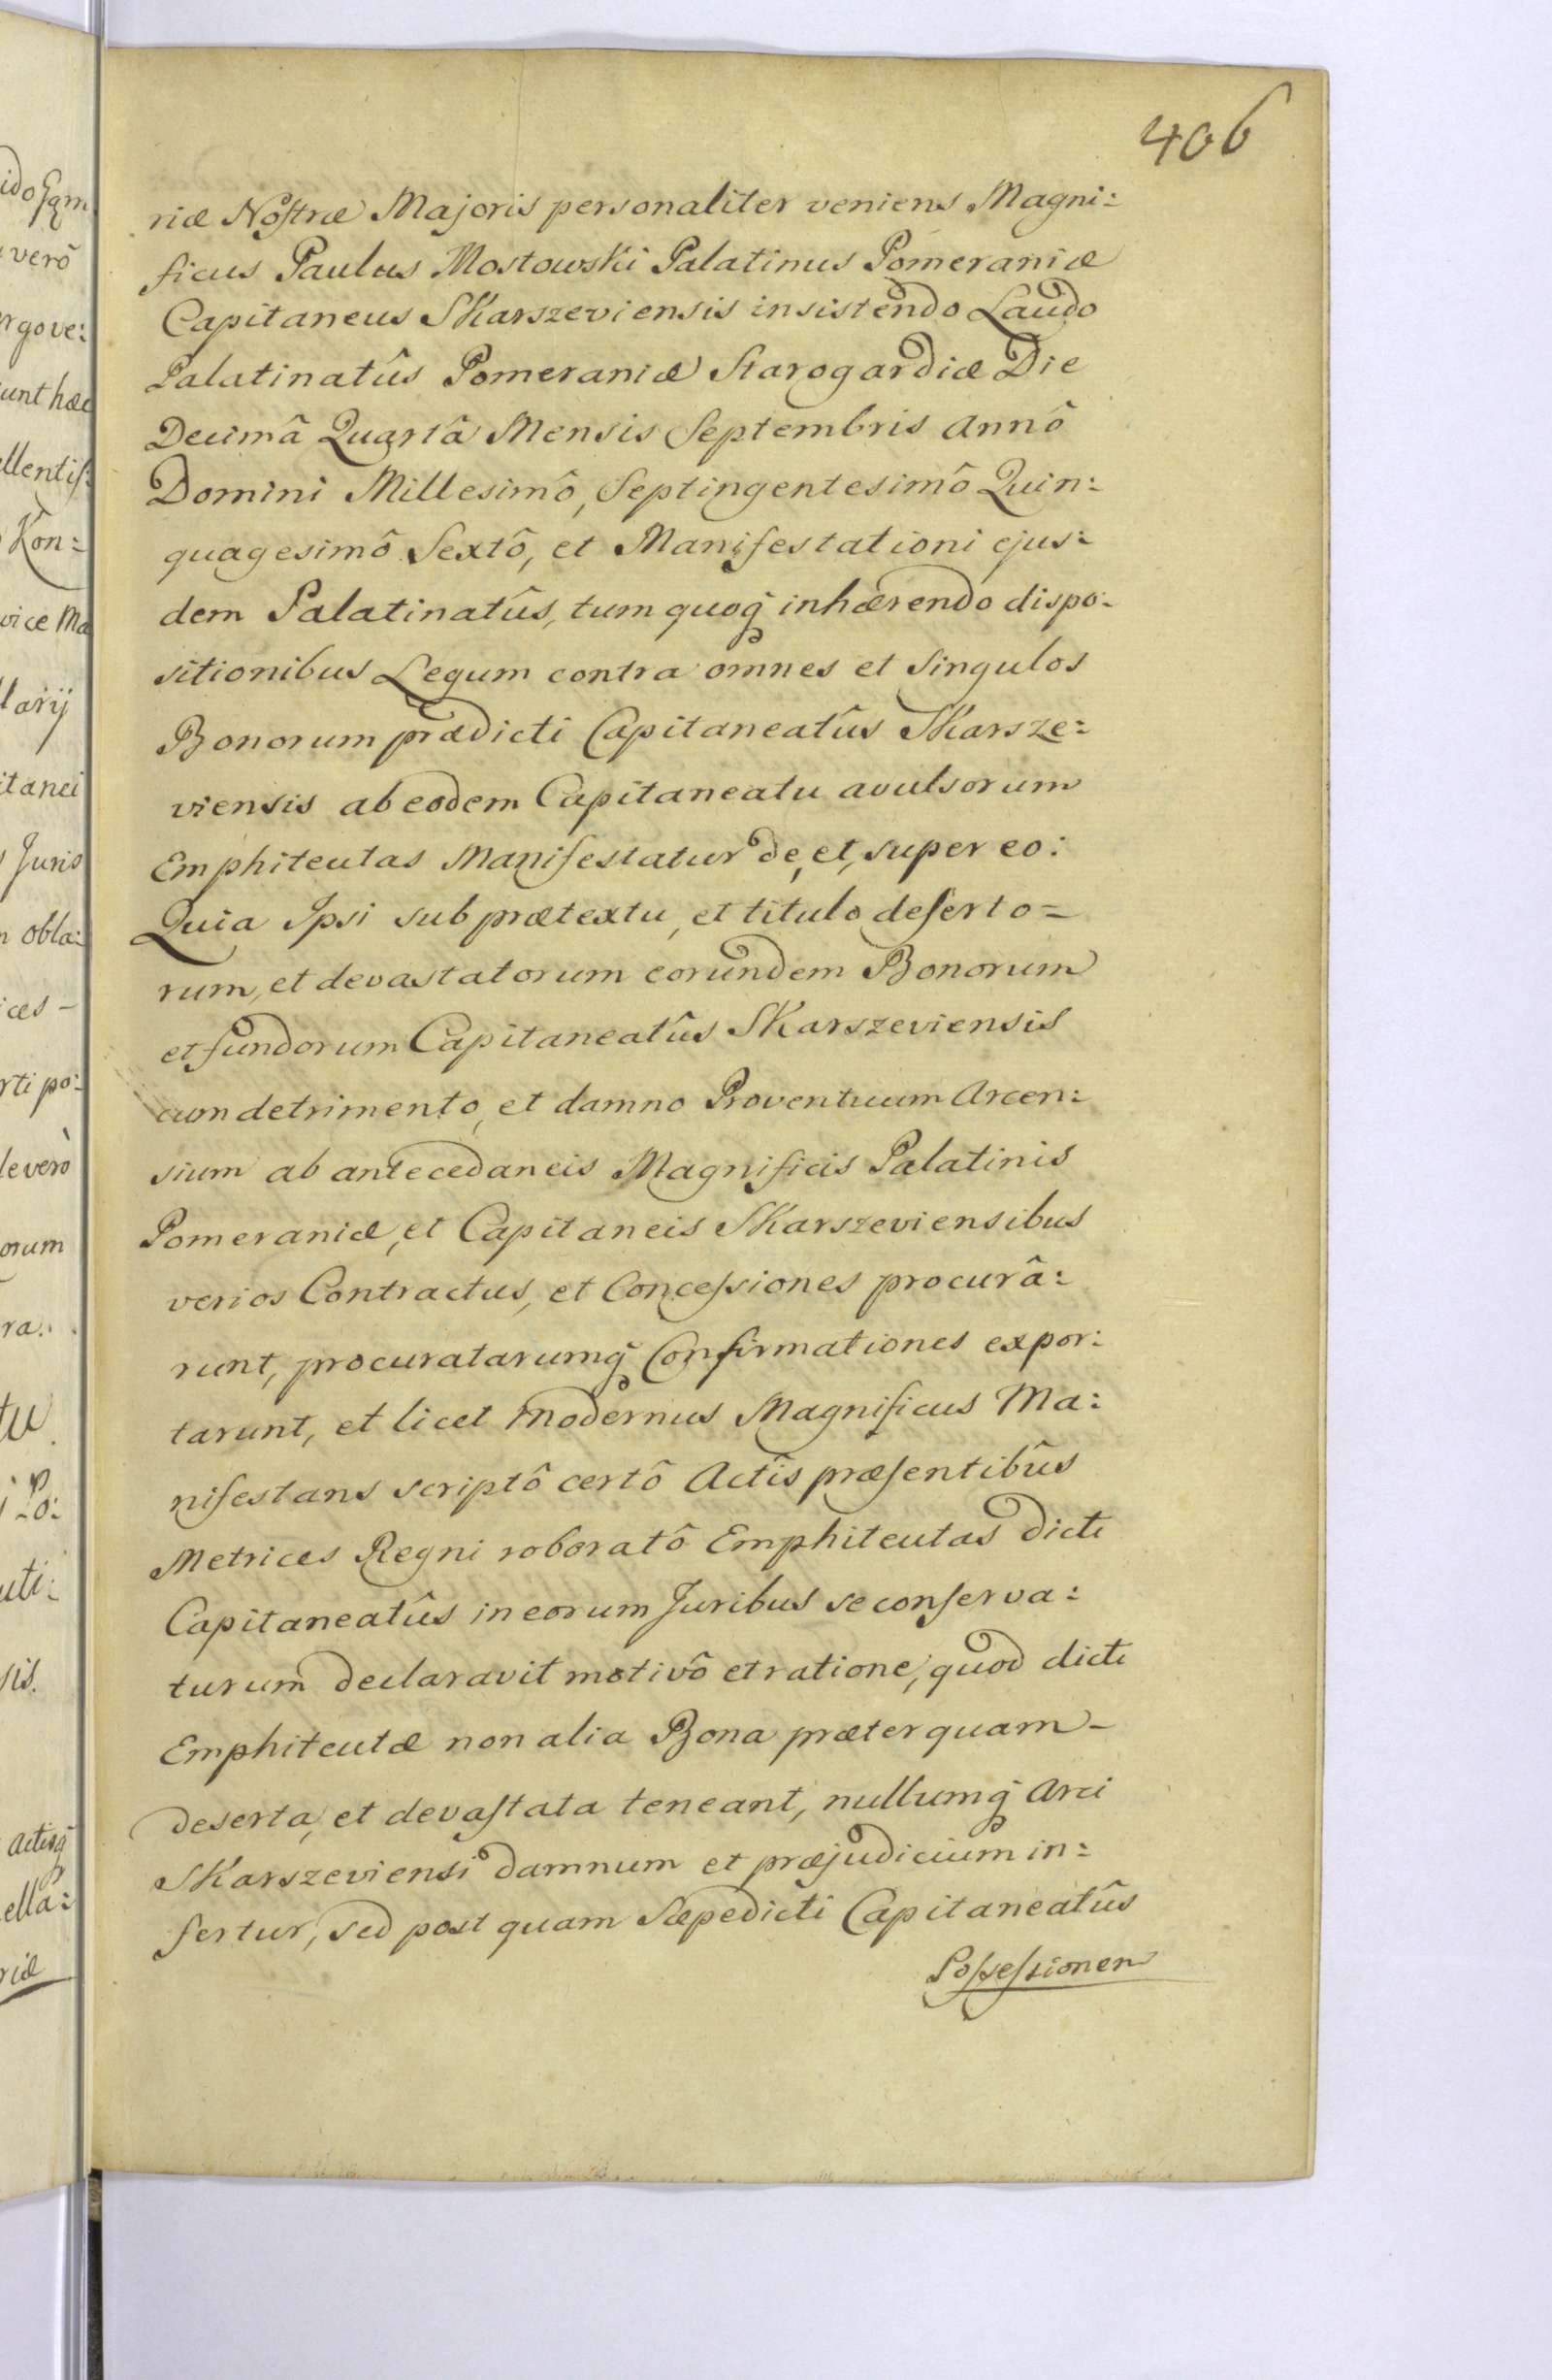 406
riæ Nostræ Majoris personaliter veniens Magni:
ficus Paulus Mostowski Palatinus Pomeraniæ
Capitaneus Skarszeviensis insistendo Laudo
Palatinatûs Pomeraniæ Starogardiæ Die
Decimâ Quartâ Mensis Septembris Annô
Domini Millesimô, Septingentesimô Quin:
quagesimô Sextô, et Manifestationi ejus:
dem Palatinatûs, tum quoq̃ inhærendo dispo:
sitionibus Legum contra omnes et Singulos
Bonorum prædicti Capitaneatûs Skarsze:
viensis ab eodem Capitaneatu avulsorum
Emphiteutas Manifestatur de, et, super eo:
Quia Ipsi sub prætextu, et titulo deserto=
rum, et devastatorum eorundem Bonorum
et fundorum Capitaneatûs Skarszeviensis
cum detrimento, et damno Proventuum Arcen:
sium ab antecedaneis Magnificis Palatinis
Pomeraniæ, et Capitaneis Skarszeviensibus
verios Contractus, et Concessiones procurâ:
runt, procuratarumq̃ Confirmationes expor:
tarunt, et licet modernus Magnificus Ma:
nifestans scriptô certô Actîs præsentibûs
Metrices Regni roboratô Emphiteutas dicti
Capitaneatûs in eorum Juribus se conserva:
turum declaravit motivô et ratione, quod dicti
Emphiteutæ non alia Bona præterquam-
deserta, et devastata teneant, nullumq̃ Arci
Skarszeviensi damnum et præjudicium in:
fertur, sed post quam Sæpedicti Capitaneatûs
Possessionem